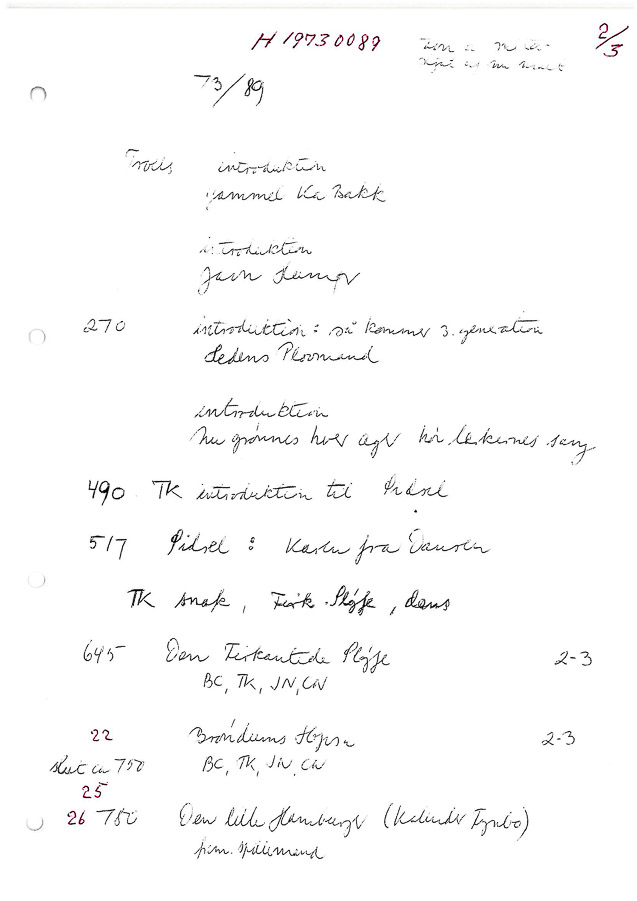 H 19730089
2/3
73/89
Troels introduktion
gammel Ka Bakk
introduktion
270 introduktion: så kommer 3. generation
Plovmand
introduktion
nu grønnes hver ager hør lærkernes sang
490 TK introduktion til Pidsel
517 Pidsel: Karen fra
TK snak, Firk. Pløje, dans
645 Den Firkantede Pløje 2-3
BC, TK, JN, CN
22 Brøndums Hopsa 2-3
slut ca 750 BC, TK, JN, CN
25
26 780 Den lille Hamburger (Kalinder Fynbo)
spillemand